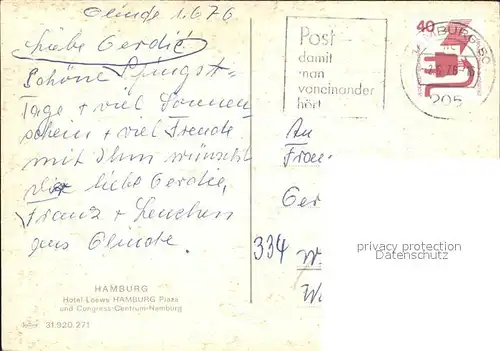 Glinde 1.6.76
Liebe Gerdie
Schöne Pfingst=
Tage + viel Sonnen
schein + viel Freude
mit Ihm wünscht
Dir liebe Gerdie,
Franz + Lenchen
aus Glinde.
Post
damit
man
voneinander
hört
40
205
An
Frau
Ger
334
privacy protection
watermark
HAMBURG
Hotel Loews HAMBURG Plaza
und Congress-Centrum-Hamburg
31.920.271